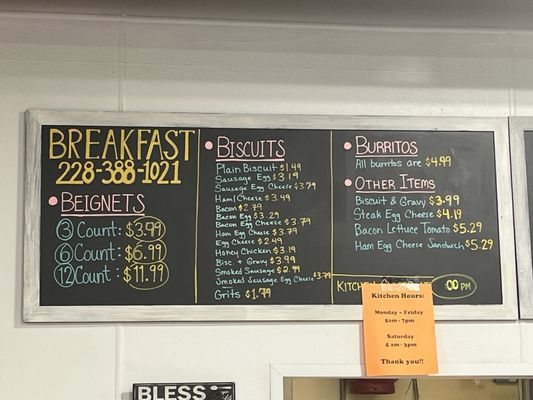 BREAKFAST
228-388-1021
BEIGNETS
3 Count: $3.99
6 Count: $6.99
12 Count: $11.99
BISCUITS
Plain Biscuit $1.49
Sausage Egg $3.19
Sausage Egg Cheese $3.79
Ham/Cheese $3.49
Bacon $2.79
Bacon Egg $3.29
Bacon Egg Cheese $3.79
Ham Egg Cheese $3.79
Egg Cheese $2.49
Honey Chicken $3.19
Bisc + Gravy $3.99
Smoked Sausage $2.99
Smoked Sausage Egg Cheese $3.79
Grits $1.79
BURRITOS
All burritos are $4.99
OTHER ITEMS
Biscuit & Gravy $3.99
Steak Egg Cheese $4.19
Bacon Lettuce Tomato $5.29
Ham Egg Cheese Sandwich $5.29
KITCHEN :00 PM
Kitchen Hours:
Monday – Friday
5am - 7pm
Saturday
5 am - 3pm
Thank you!!
BLESS